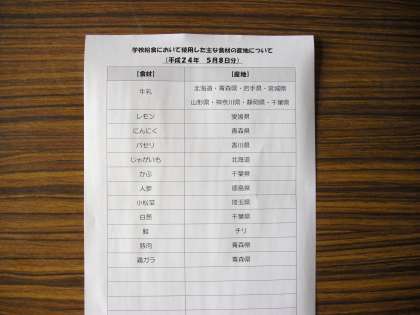 学校給食において使用した主な食材の産地について
（平成24年　5月8日分）
［食材］　［産地］
牛乳　北海道・青森県・岩手県・宮城県
山形県・神奈川県・静岡県・千葉県
レモン　愛媛県
にんにく　青森県
パセリ　香川県
じゃがいも　北海道
かぶ　千葉県
人参　徳島県
小松菜　埼玉県
白魚　千葉県
鮭　チリ
豚肉　青森県
鶏ガラ　青森県